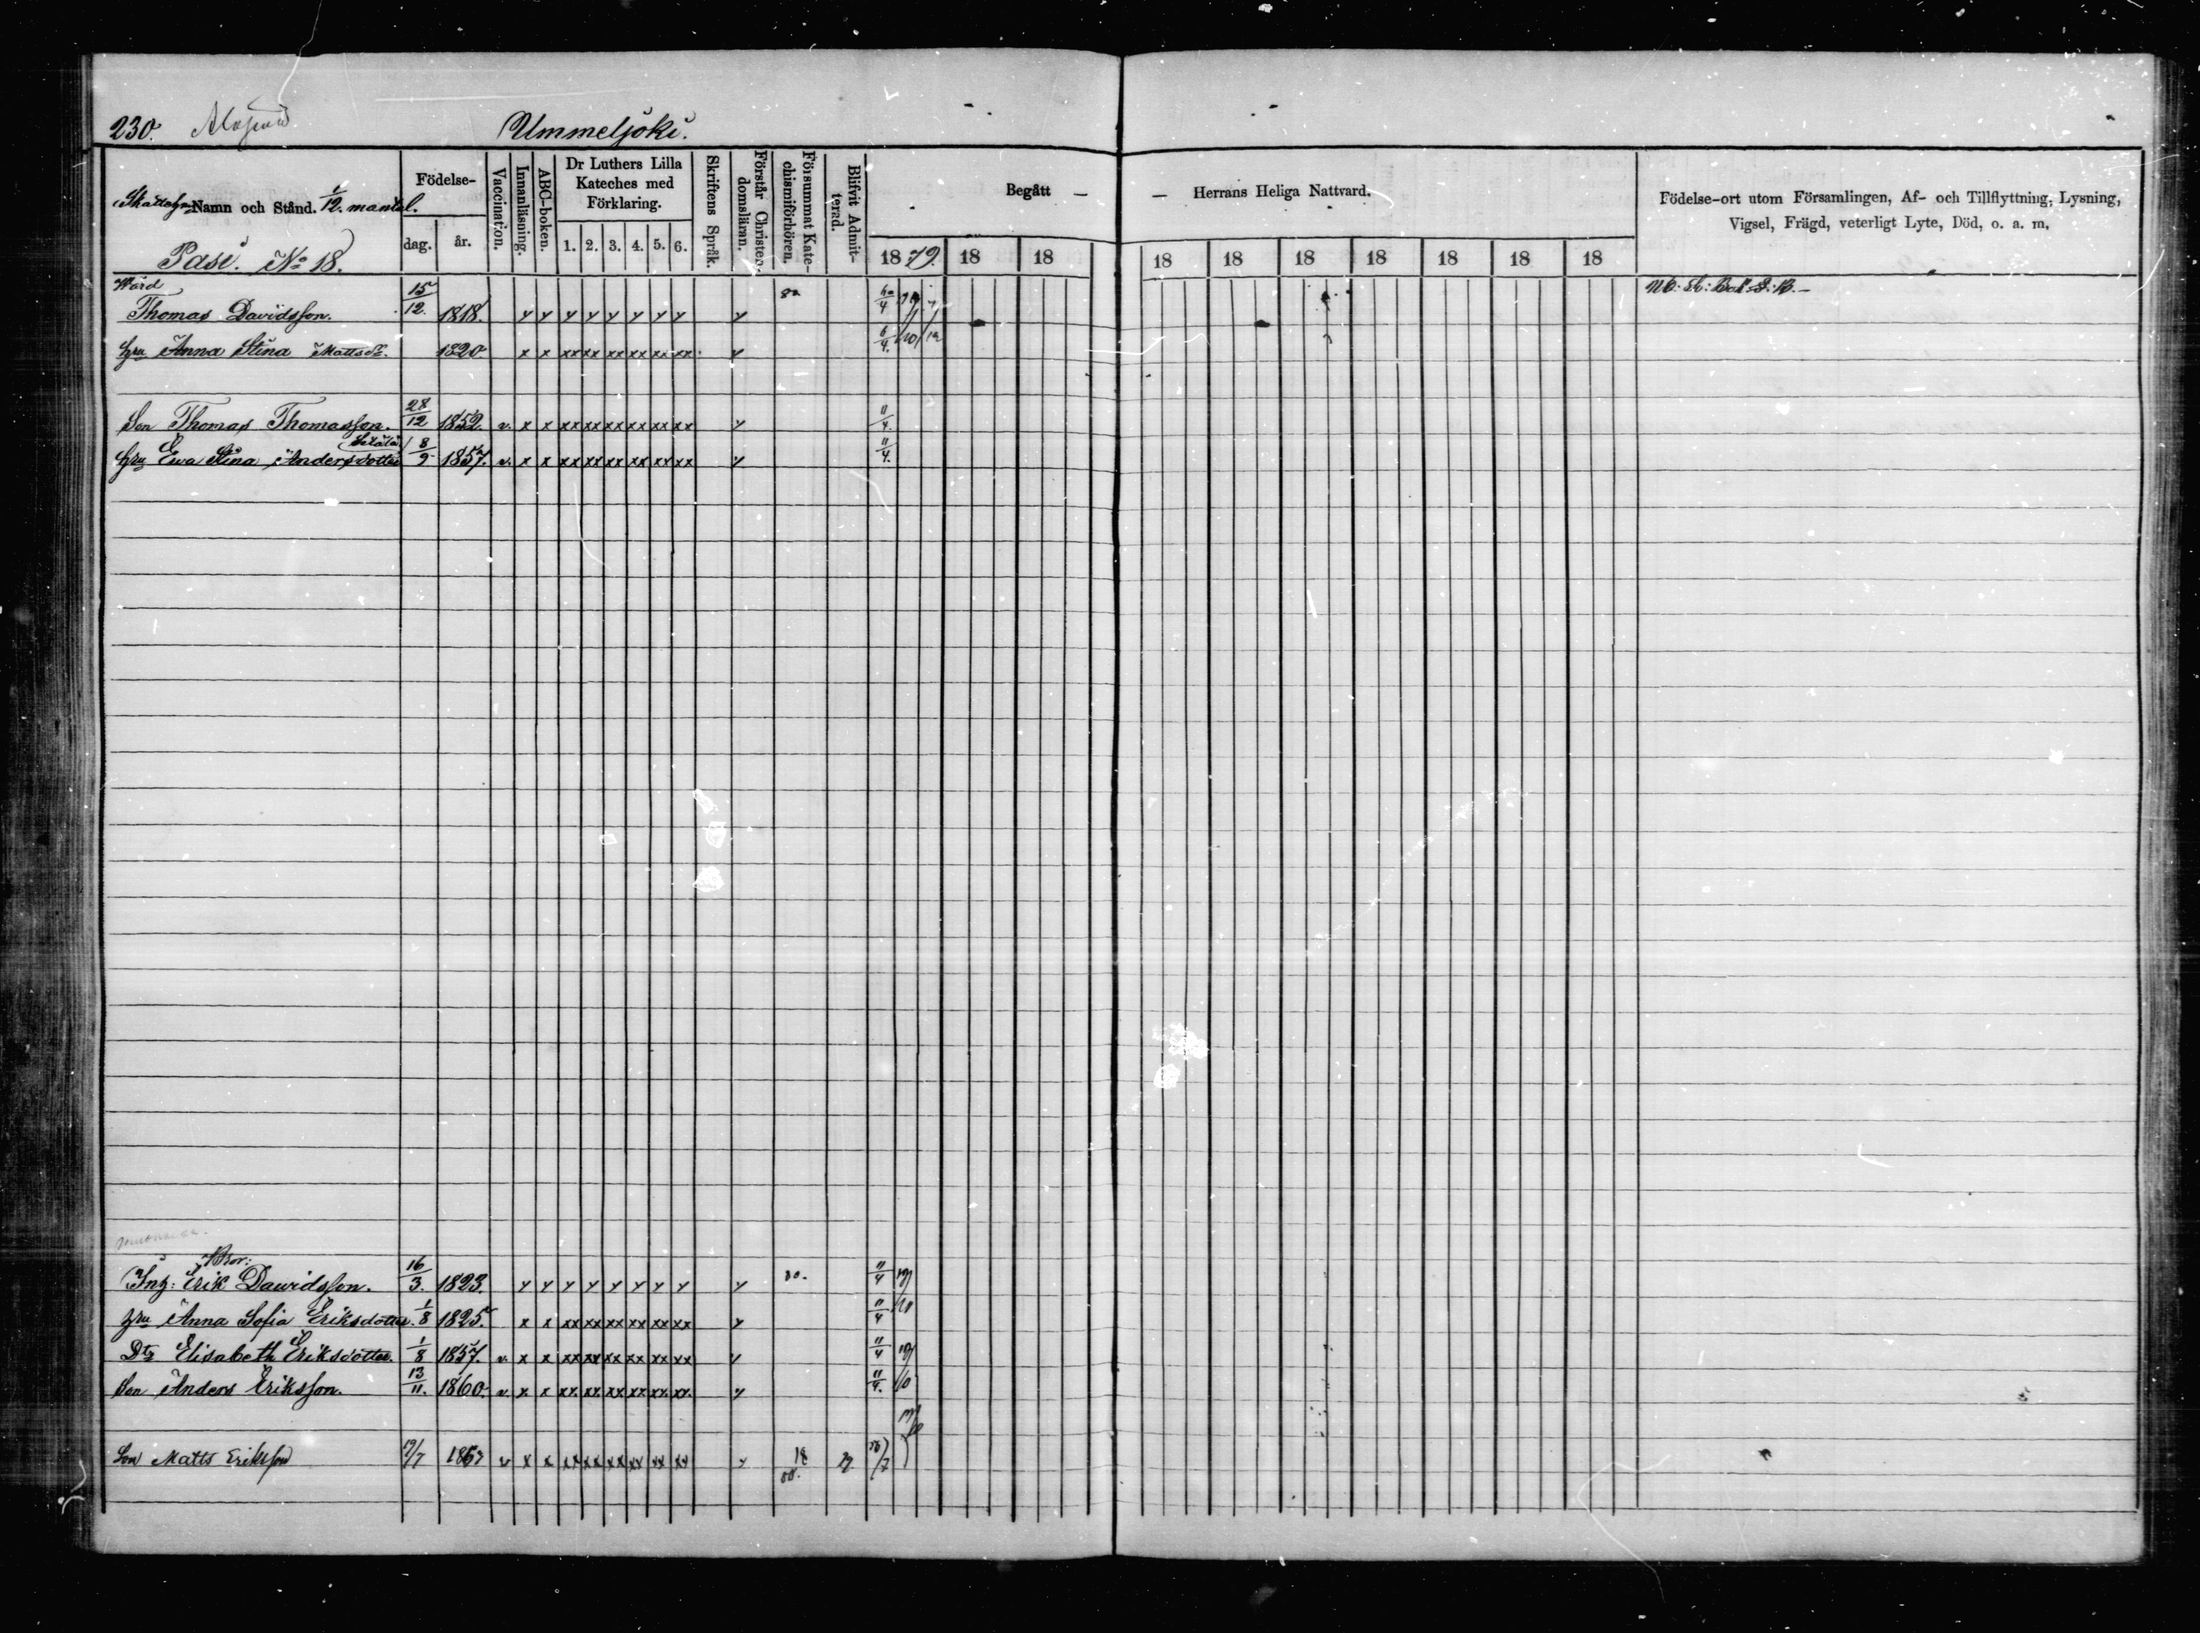 230. Ummeljoki.
Namn och Stånd. 1/12. mantal.
Födelse-
dag. år.
Vaccination.
Innanläsning.
ABC-boken.
Dr Luthers Lilla
Kateches med
Förklaring.
1. 2. 3. 4. 5. 6.
Skriftens Språk.
Förstår Christen-
domsläran.
Försummat Kate-
chismiförhören.
Blifvit Admit-
terad.
Begått — — Herrans Heliga Nattvard.
1879. 18 18 18 18 18 18 18 18 18
Födelse-ort utom Församlingen, Af- och Tillflyttning, Lysning,
Vigsel, Frägd, veterligt Lyte, Död, o. a. m.
Pasi. No 18.
Wärd
Thomas Davidsson. 15/12. 1818. y y y y y y y y y
hru Anna Stina Mattsdr. 1820. x x xx xx xx xx xx xx y 6/4.
Son Thomas Thomasson. 28/12 1852. v. x x xx xx xx xx xx xx y 11/4.
hru Ewa Stina Andersdotter 8/9 1857. v. x x xx xx xx xx xx xx y 11/4.
Bror:
Inh: Erik Dawidsson. 16/3. 1823. y y y y y y y y y 80. 11/4
hru Anna Sofia Eriksdotter. 1/8 1825. x x xx xx xx xx xx xx y 11/4
Dtr Elisabeth Eriksdotter. 1/8 1857. v. x x xx xx xx xx xx xx y 11/4
Son Anders Eriksson. 13/11. 1860. v x x xx xx xx xx xx xx y 11/4.
Son Matts Eriksson 19/7 1863 v x x xx xx xx xx xx xx y